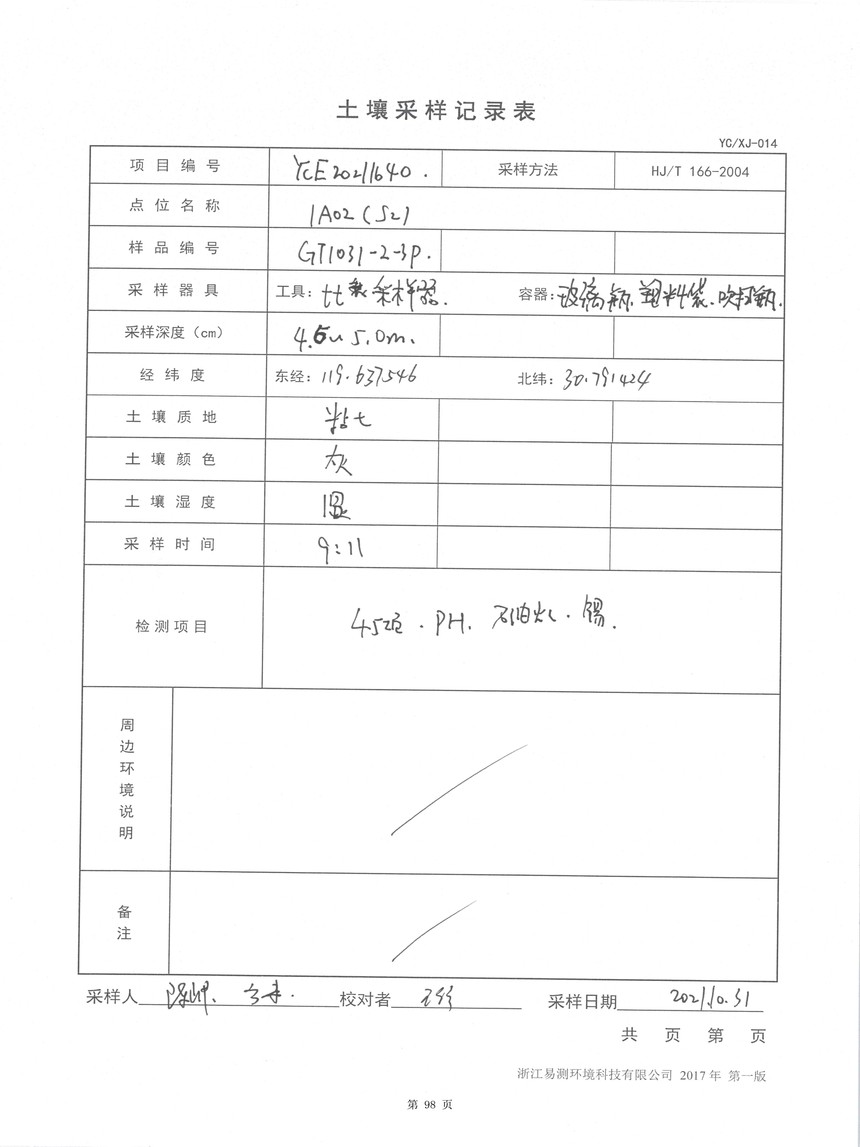 土壤采样记录表
YC/XJ-014
项目编号 YCE20211640. 采样方法 HJ/T 166-2004
点位名称 1A02(S2)
样品编号 GT1031-2-3P.
采样器具 工具: 采样器. 容器: 玻璃瓶.塑料袋.吹扫瓶.
采样深度(cm) 4.5~5.0m.
经纬度 东经: 119.637546 北纬: 30.791424
土壤质地 粘土
土壤颜色 灰
土壤湿度 湿
采样时间 9:11
检测项目 45项.PH.石油烃.锡.
周边环境说明
备注
采样人 校对者 采样日期 2021.10.31
共 页 第 页
浙江易测环境科技有限公司 2017年 第一版
第 98 页